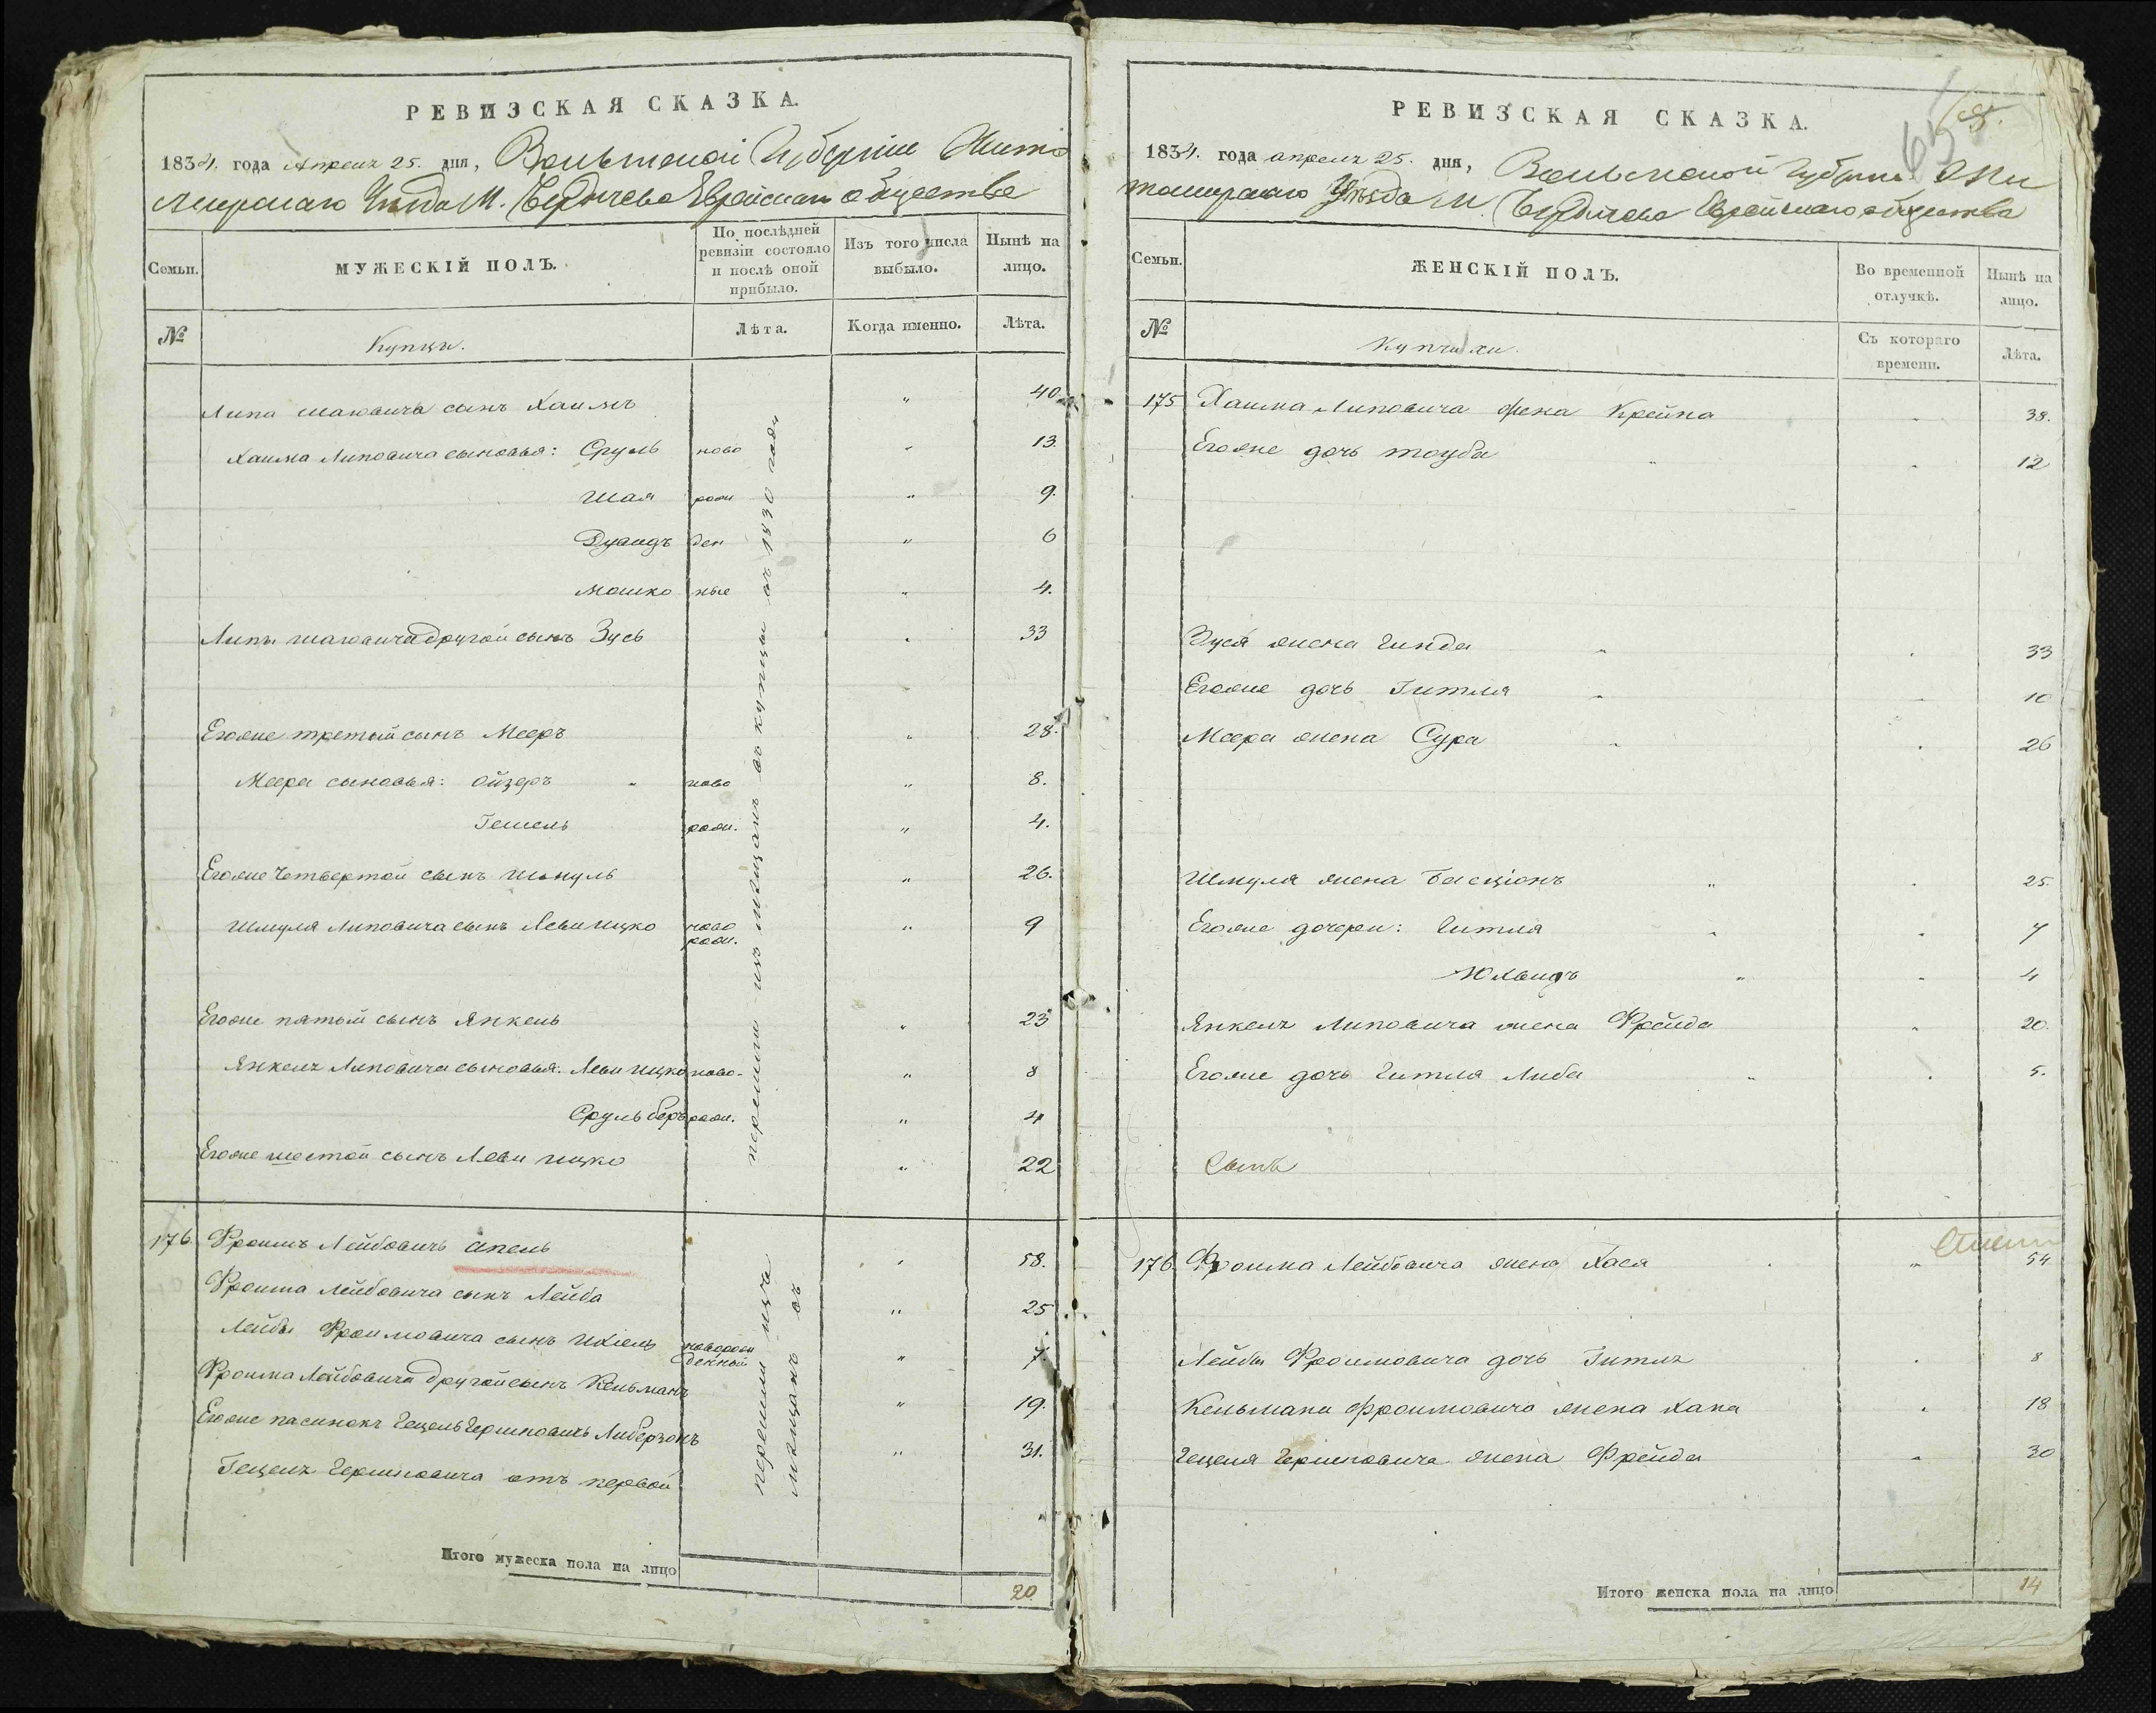 РЕВИЗСКАЯ СКАЗКА.
1834. года Апреля 25. дня, Волынской Губернии Жито
мирскаго Уезда М. Бердичева Еврейскаго общества
Семьи.
МУЖЕСКІЙ ПОЛЪ.
По послѣдней
ревизіи состояло
и послѣ оной
прибыло.
Изъ того числа
выбыло.
Нынѣ на
лицо.
№
Купцы.
Лѣта.
Когда именно.
Лѣта.
Липа шаювича сынъ Хаимъ " 40
Хаима Липовича сыновья: Сруль ново " 13.
Шая рож " 9.
Дувидъ ден " 6
Мошко ные " 4.
Липы шаювича другой сынъ Зусь " 33
Егоже третый сынъ Мееръ " 28.
Меера сыновья: Ойзеръ ново " 8.
Гешель рож. " 4.
Егоже четвертой сынъ Шмуль " 26.
Шмуля Липовича сынъ Леви Ицко ново " 9
рож.
Егоже пятый сынъ Янкель " 23
Янкеля Липовича сыновья: Леви Ицко ново- " 8
Сруль беръ рож. " 4
Егоже шестой сынъ Леви ицко " 22
перешли изъ мещанъ въ купцы въ 1830 годе
176. Фроимъ Лейбовичъ Апель " 58.
Фроима Лейбовича сынъ Лейба " 25
Лейбы Фроимовича сынъ Ихіель новорож " 7.
денный
Фроима Лейбовича другой сынъ Кельманъ " 19.
Егоже пасинокъ Гецель Гершковичъ Либерзонъ " 31.
Гецеля Гершковича отъ первой
перешли изъ
мещанъ въ
Итого мужеска пола на лицо 20
РЕВИЗСКАЯ СКАЗКА.
65
1834. года апреля 25. дня, Волынской Губерніи Жи
томирскаго Уезда М. Бердичева Еврейскаго общества
Семьи.
ЖЕНСКІЙ ПОЛЪ.
Во временной
отлучкѣ.
Нынѣ на
лицо.
№
Купчихи.
Съ котораго
времени.
Лѣта.
175 Хаима Липовича жена Крейна " 38.
Егоже дочь тоуба " " 12
Зуся жена Гинда " " 33
Егоже дочь Гитля " " 10
Меера жена Сура " " 26
Шмуля жена Басціонъ " " 25.
Егоже дочери: Гитля " " 7
" " 4
Янкеля Липовича жена Фрейда " 20.
Егоже дочь Гитля Либа " " 5.
сынъ
176. Фроима Лейбовича жена Хася " 54
Лейбы Фроимовича дочь Гитля " 8
Кельмана Фроимовича жена Хана " 18
Гецеля Гершковича жена Фрейда " 30
Итого женска пола на лицо 14